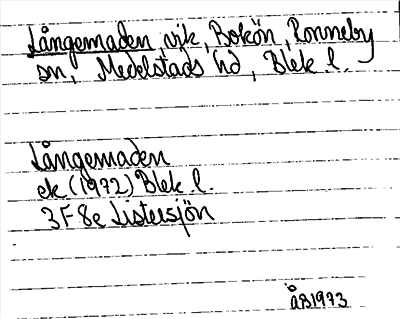 Långemaden, vik, Bokön, Ronneby
sn, Medelstads hd, Blek. l.
Långemaden
ek (1972) Blek. l.
3F 8e Listersjön
ÅB1973